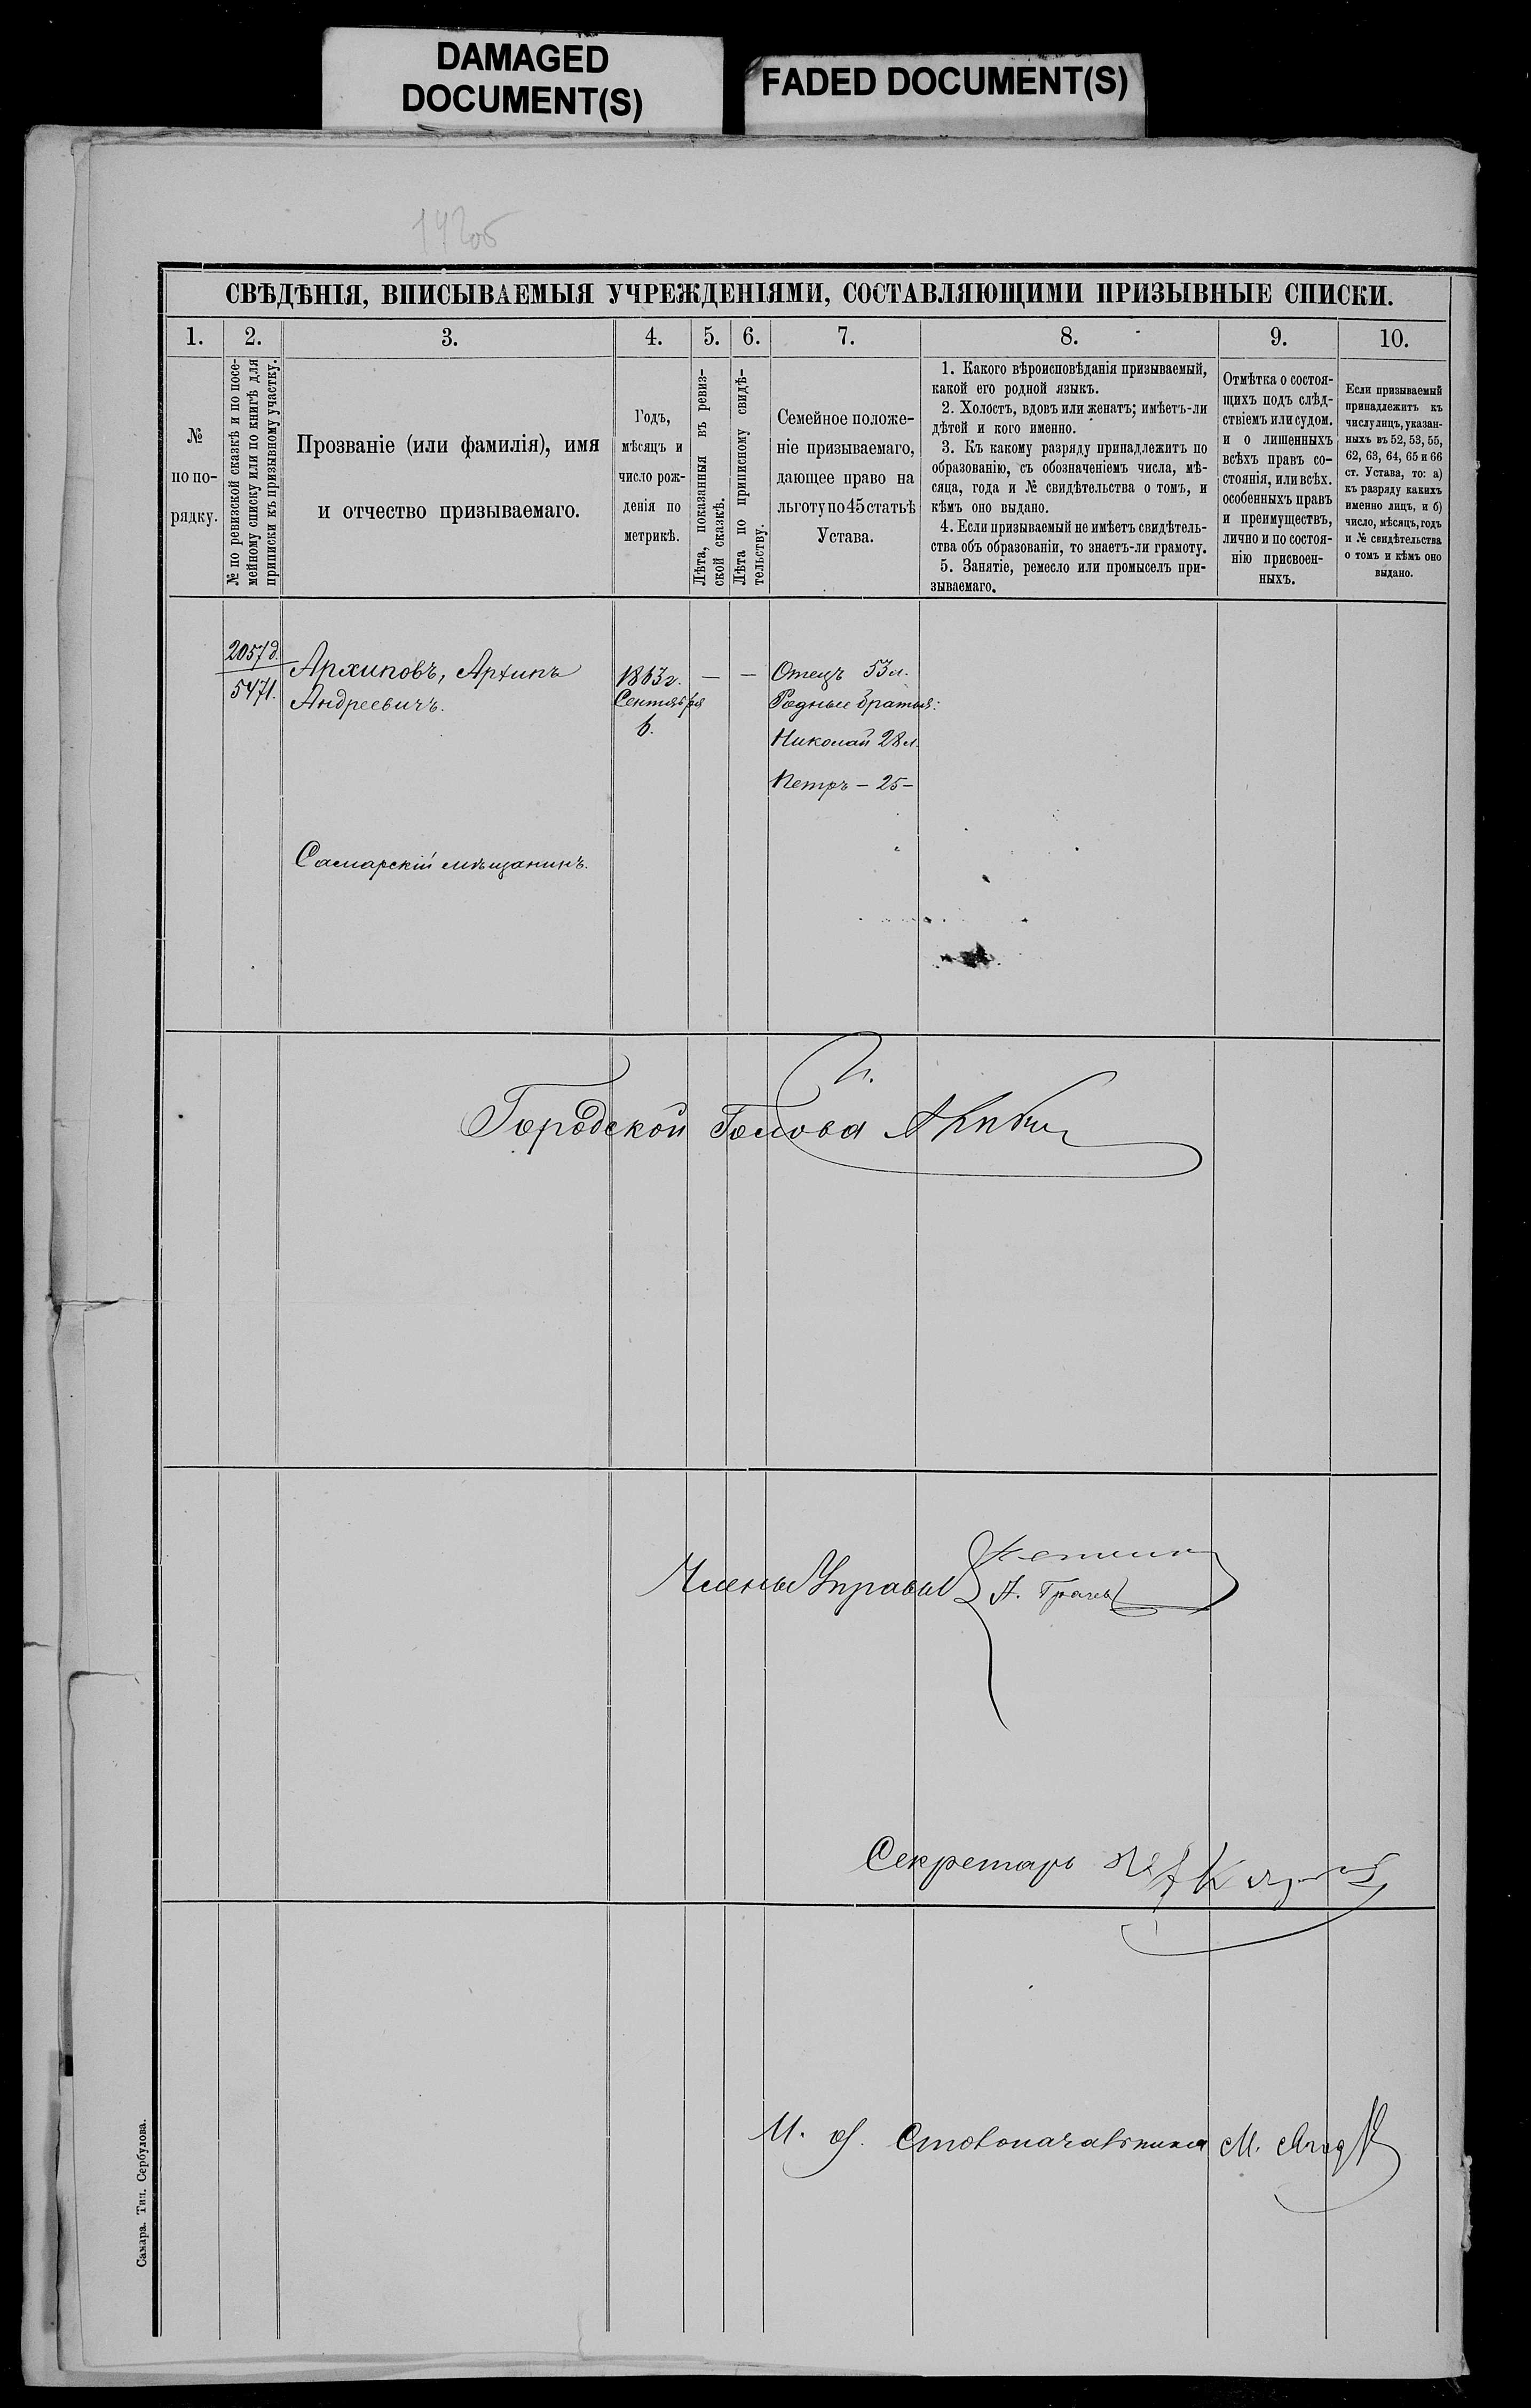 DAMAGED
DOCUMENT(S)
FADED DOCUMENT(S)
СВѢДѢНІЯ, ВПИСЫВАЕМЫЯ УЧРЕЖДЕНІЯМИ, СОСТАВЛЯЮЩИМИ ПРИЗЫВНЫЕ СПИСКИ.
1.
2.
3.
4.
5.
6.
7.
8.
9.
10.
№
по по-
рядку.
№ по ревизской сказкѣ и по посе-
мейному списку или по книгѣ для
приписки къ призывному участку.
Прозваніе (или фамилія), имя
и отчество призываемаго.
Годъ,
мѣсяцъ и
число рож-
денія по
метрикѣ.
Лѣта, показанныя въ ревиз-
ской сказкѣ.
Лѣта по приписному свидѣ-
тельству.
Семейное положе-
ніе призываемаго,
дающее право на
льготу по 45 статьѣ
Устава.
1. Какого вѣроисповѣданія призываемый,
какой его родной языкъ.
2. Холостъ, вдовъ или женатъ; имѣетъ-ли
дѣтей и кого именно.
3. Къ какому разряду принадлежитъ по
образованію, съ обозначеніемъ числа, мѣ-
сяца, года и № свидѣтельства о томъ, и
кѣмъ оно выдано.
4. Если призываемый не имѣетъ свидѣтель-
ства объ образованіи, то знаетъ-ли грамоту.
5. Занятіе, ремесло или промыселъ при-
зываемаго.
Отмѣтка о состоя-
щихъ подъ слѣд-
ствіемъ или судом.
и о лишенныхъ
всѣхъ правъ со-
стоянія, или всѣх.
особенныхъ правъ
и преимуществъ,
лично и по состоя-
нію присвоен-
ныхъ.
Если призываемый
принадлежитъ къ
числу лицъ, указан-
ныхъ въ 52, 53, 55,
62, 63, 64, 65 и 66
ст. Устава, то: а)
къ разряду какихъ
именно лицъ, и б)
число, мѣсяцъ, годъ
и № свидѣтельства
о томъ и кѣмъ оно
выдано.
2057 д.
5471.
Архиповъ, Архипъ
Андреевичъ.
1863 г.
Сентября
6.
—
—
Отецъ 53 л.
Родные братья:
Николай 28 л.
Петръ – 25 –
Самарскій мѣщанинъ.
Городской Голова
Члены Управы
А. Грачев
Секретарь
И. д. Столоначальника М.
Самара. Тип. Сербулова.